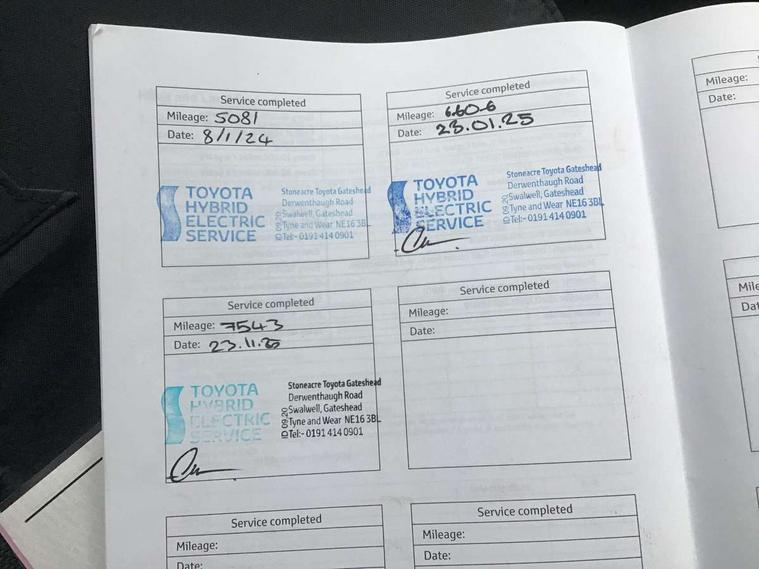 Service completed
Mileage: 5081
Date: 8/1/24
TOYOTA
HYBRID
ELECTRIC
SERVICE
Stoneacre Toyota Gateshead
Derwenthaugh Road
Swalwell, Gateshead
Tyne and Wear NE16 3BL
Tel:- 0191 414 0901
ID 09.20
Service completed
Mileage: 6606
Date: 23.01.25
TOYOTA
HYBRID
ELECTRIC
SERVICE
Stoneacre Toyota Gateshead
Derwenthaugh Road
Swalwell, Gateshead
Tyne and Wear NE16 3BL
Tel:- 0191 414 0901
ID 09.20
Service completed
Mileage: 7543
Date: 23.11.25
TOYOTA
HYBRID
ELECTRIC
SERVICE
Stoneacre Toyota Gateshead
Derwenthaugh Road
Swalwell, Gateshead
Tyne and Wear NE16 3BL
Tel:- 0191 414 0901
ID 09.20
Service completed
Mileage:
Date:
Service completed
Mileage:
Date:
Service completed
Mileage:
Date:
Mileage:
Date:
Mile
Dat